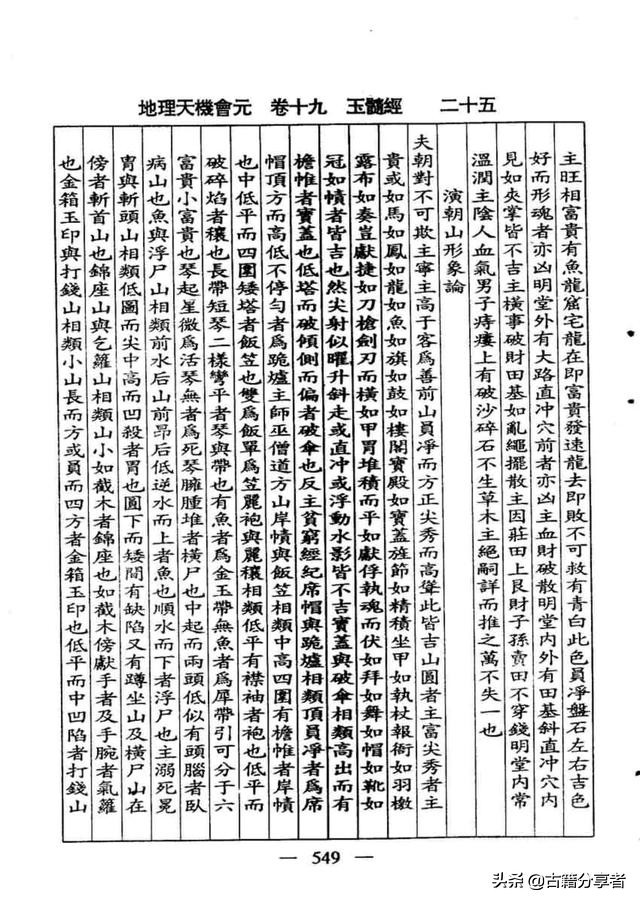 地理天機會元　卷十九　玉髓經　二十五
主旺相富貴有魚龍窟宅龍在即富貴發速龍去即敗不可救有青白此色員凈盤石左右吉色
好而形魂者亦凶明堂外有大路直冲穴前者亦凶主血財破散明堂内外有田基斜直冲穴内
見如夾掌皆不吉主橫事破財田基如亂繩擺散主因莊田上艮財子孫賣田不穿錢明堂内常
溫潤主陰人血氣男子痔瘻上有破沙碎石不生草木主絕嗣詳而推之萬不失一也
演朝山形象論
夫朝對不可欺主寧主高于客爲善前山員凈而方正尖秀而高聳此皆吉山圓者主富尖秀者主
貴或如馬如鳳如龍如魚如旗如鼓如樓閣寶殿如寶蓋旌節如精積坐甲如執杖報衙如羽檄
露布如奏豈獻捷如刀槍劍刃而橫如甲胄堆積而平如獻俘執魂而伏如拜如舞如帽如靴如
冠如幘者皆吉也然尖射似曜升斜走或直冲或浮動水影皆不吉寶蓋與破傘相類高出而有
檐惟者寶蓋也低塔而破傾側而偏者破傘也反主貧窮經紀席帽與跪爐相類頂員凈者爲席
帽頂方而高低不停勻者爲跪爐主師巫僧道方山岸幘與飯笠相類中高四圍有檐惟者岸幘
也中低平而四圍矮塔者飯笠也雙爲飯單爲笠麗袍與麗穰相類低平有襟袖者袍也低平而
破碎焰者穰也長帶短琴二樣彎平者琴與帶也有魚者爲金玉帶無魚者爲犀帶引可分于六
富貴小富貴也琴起星微爲活琴無者爲死琴臃腫堆者橫尸也中起而兩頭低似有頭腦者臥
病山也魚與浮尸山相類前水后山前昂后低逆水而上者魚也順水而下者浮尸也主溺死冕
胄與斬頭山相類低圖而尖中高而凹殺者胃也圓下而矮間有缺陷又有蹲坐山及橫尸山在
傍者斬首山也錦座山與乞籮山相類山小如截木者錦座也如截木傍獻手者及手腕者氣籮
也金箱玉印與打錢山相類小山長而方或員而四方者金箱玉印也低平而中凹陷者打錢山
— 549 —
头条 @古籍分享者